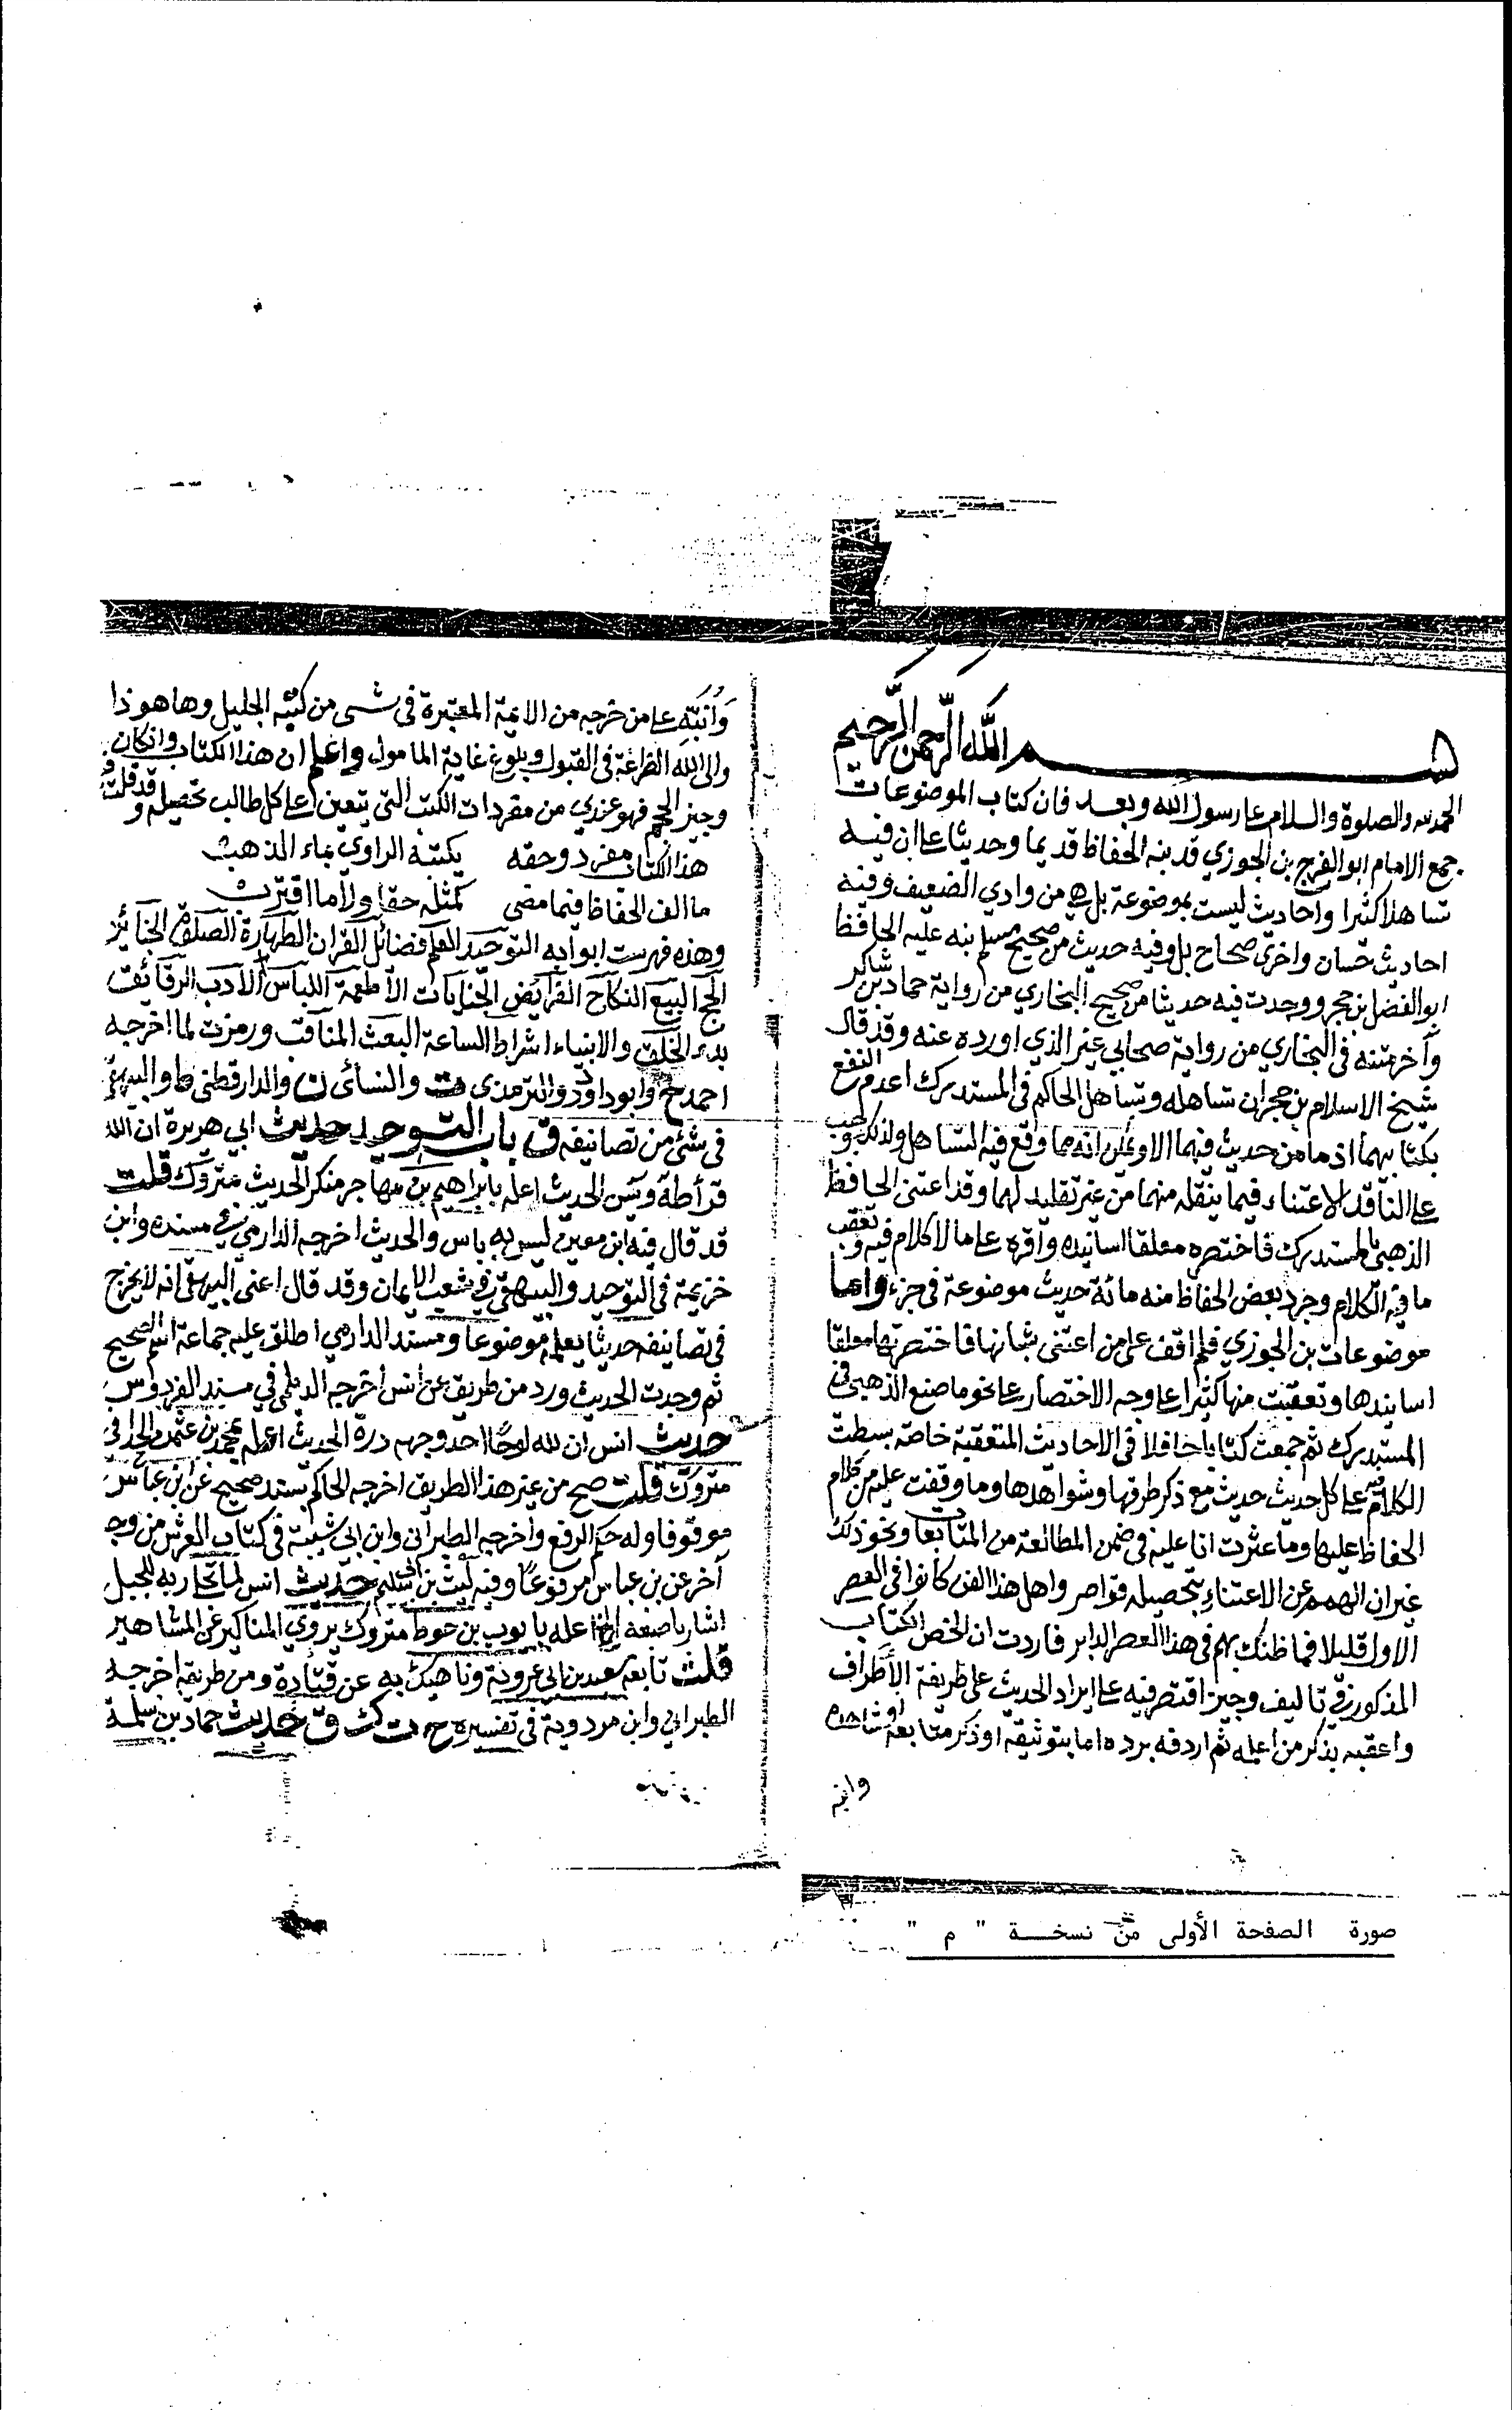 بسم الله الرحمن الرحيم
الحمد لله والصلوة والسلام على رسول الله وبعد فان كتاب الموضوعات
جمع الامام ابو الفرج بن الجوزي قد نبه الحفاظ قديما وحديثا على ان فيه
تساهلا كثيرا واحاديث ليست بموضوعة بل هي من وادي الضعيف وفيه
احاديث حسان واخرى صحاح بل وفيه حديث من صحيح مسلم نبه عليه الحافظ
ابو الفضل بن حجر ووجدت فيه حديثا من صحيح البخاري من رواية حماد بن شاكر
وآخر متنه في البخاري من رواية صحابي غير الذي اورده عنه وقد قال
شيخ الاسلام بن حجر ان تساهله وتساهل الحاكم في المستدرك اعدم النفع
بكتابيهما اذ ما من حديث فيهما الا ويمكن انه مما وقع فيه التساهل ولذلك وجب
على الناقد الاعتناء فيما ينقله منهما من غير تقليد لهما وقد اعتنى الحافظ
الذهبي بالمستدرك فاختصره معلقا اسانيده واقره على ما لا كلام فيه وتعقب
ما فيه الكلام وجرد بعض الحفاظ منه مائة حديث موضوعة في جزء واما
موضوعات بن الجوزي فلم اقف على من اعتنى بشانها فاختصرتها معلقا
اسانيدها وتعقبت منها كثيرا على وجه الاختصار على نحو ما صنع الذهبي في
المستدرك ثم جمعت كتابا حافلا في الاحاديث المتعقبة خاصة بسطت
الكلام فيه على كل حديث حديث مع ذكر طرقها وشواهدها وما وقفت عليه من كلام
الحفاظ عليها وما عثرت انا عليه في ضمن المطالعة من المتابعات ونحو ذلك
غير ان الهمم عن الاعتناء بتحصيله قواصر واهل هذا الفن كانوا في العصر
الاول قليلا فما ظنك بهم في هذا العصر الدابر فاردت ان الخص الكتاب
المذكور في تاليف وجيز اقتصر فيه على ايراد الحديث على طريقة الأطراف
واعقبه بذكر من اعله ثم اردفه برده اما بتوثيقه او ذكر متابعه او شاهده
وانبه
وَأُنَبِّه على من خرجه من الائمة المعتبرة في شى من كتبه الجليل وها هو ذا
والى الله الضراعة في القبول وبلوغ غاية المامول واعلم ان هذا الكتاب وان كان
وجيز الحجم فهو عندي من مفردات الكتب التي يتعين على كل طالب تحصيله وقد قلت
هذا الكتاب مفرد وحقه يكتبه الراوي بماء المذهب
ما الف الحفاظ فيما مضى كمثله حقا ولا ما اقترب
وهذه فهرست ابوابه التوحيد العلم فضائل القران الطهارة الصلاة الجنائز
الحج البيع النكاح الفرائض الجنايات الأطعمة اللباس الأدب الرقائق
بدء الخلق والانبياء اشراط الساعة البعث المناقب ورمزت لما اخرجه
احمد ح وابو داود د والترمذى ت والنسائى ن والدارقطنى ط والبيهقى
في شئ من تصانيفه ق باب التوحيد حديث ابي هريرة ان الله
قرأ طه ويس الحديث اعله بابراهيم بن مهاجر منكر الحديث متروك قلت
قد قال فيه ابن معين ليس به باس والحديث اخرجه الدارمي في مسنده وابن
خزيمة في التوحيد والبيهقي في شعب الايمان وقد قال اعنى البيهقي انه لا يخرج
في تصانيفه حديثا يعلمه موضوعا ومسند الدارمي اطلق عليه جماعة اسم الصحيح
ثم وجدت الحديث ورد من طريق عن انس اخرجه الديلمي في مسند الفردوس
حديث انس ان لله لوحًا احد وجهيه درة الحديث اعله بمحمد بن عثمان الحراني
متروك قلت صح من غير هذا الطريق اخرجه الحاكم بسند صحيح عن ابن عباس
موقوفا وله حكم الرفع واخرجه الطبراني وابن ابي شيبة في كتاب العرش من وجه
آخر عن بن عباس مرفوعًا وفيه ليث بن ابي سليم حديث انس لما تجلى ربه للجبل
اشار باصبعه اعله بايوب بن خوط متروك يروي المناكير عن المشاهير
قلت تابعه سعيد بن ابي عروبة وناهيك به عن قتادة ومن طريقه اخرجه
الطبراني وابن مردوية في تفسيره ح ت ك ق حديث حماد بن سلمة
صورة الصفحة الأولى من نسخة " م "